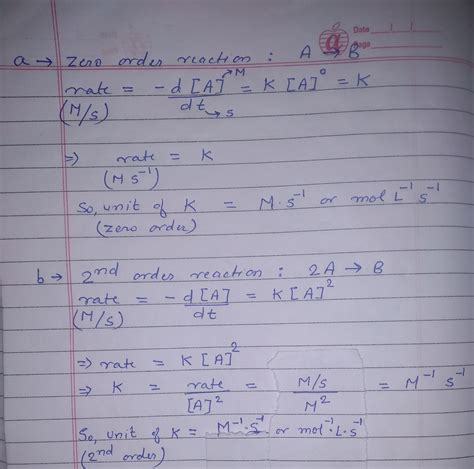 Date / /
Page
a → Zero order reaction : A → B
rate = -d[A]→M / dt→s = K [A]⁰ = K
(M/s)
⇒ rate = K
(M s⁻¹)
So, unit of K = M·s⁻¹ or mol L⁻¹ s⁻¹
(zero order)
b → 2nd order reaction : 2A → B
rate = -d[A]/dt = K[A]²
(M/s)
⇒ rate = K[A]²
⇒ K = rate/[A]² = M/s / M² = M⁻¹ s⁻¹
So, unit of K = M⁻¹·s⁻¹ or mol⁻¹·L·s⁻¹
(2nd order)